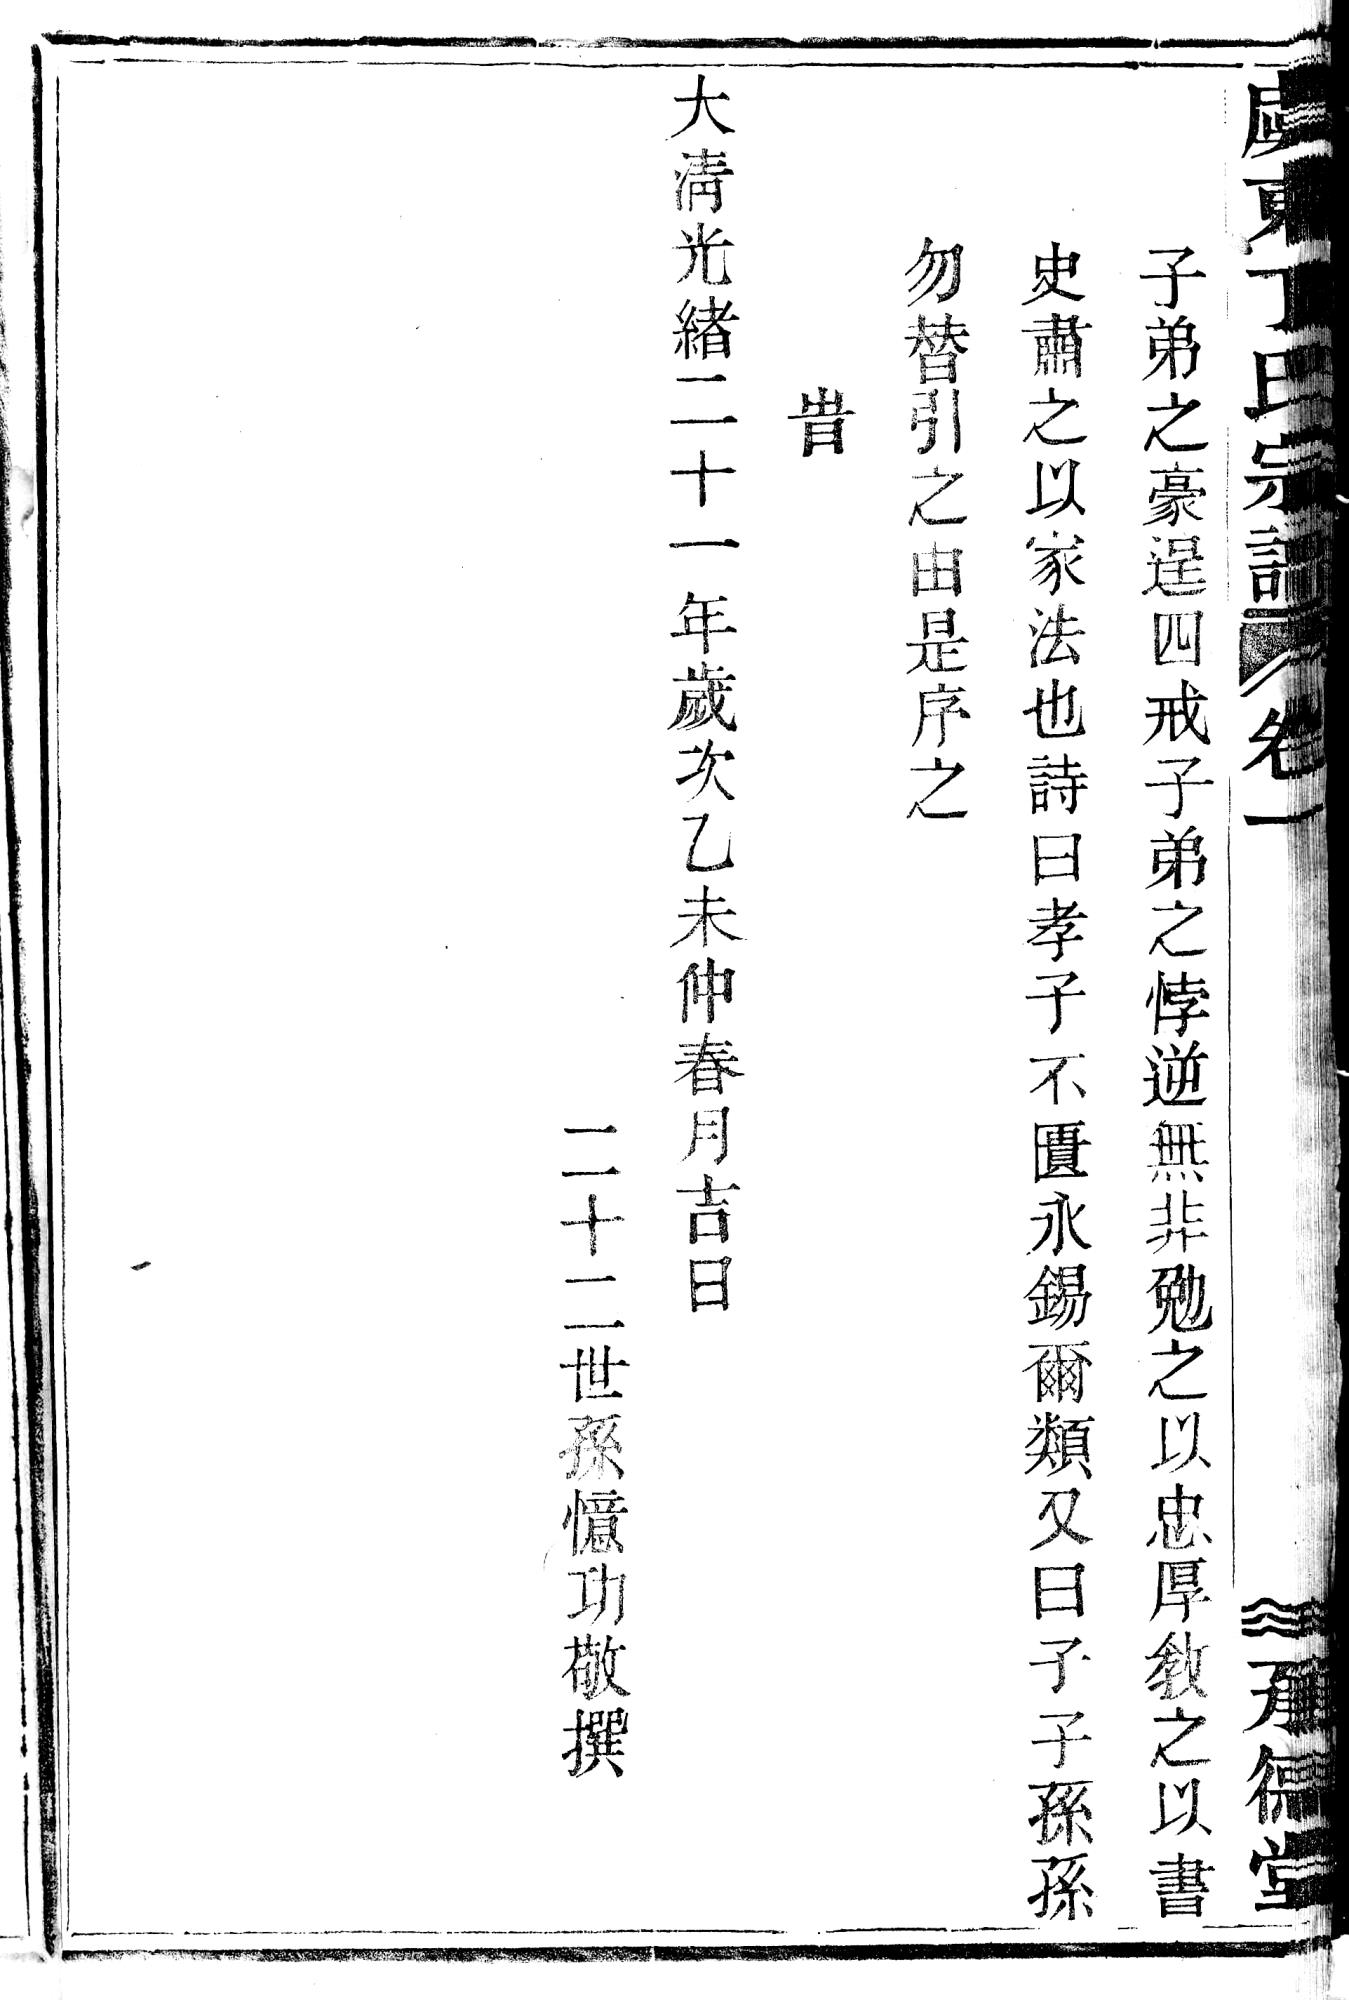 東丁氏宗譜 卷一 承德堂
子弟之豪逞四戒子弟之悖逆無非勉之以忠厚敎之以書
史肅之以家法也詩曰孝子不匱永錫爾類又曰子子孫孫
勿替引之由是序之
旹
大淸光緒二十一年歲次乙未仲春月吉日
二十二世孫憶功敬撰